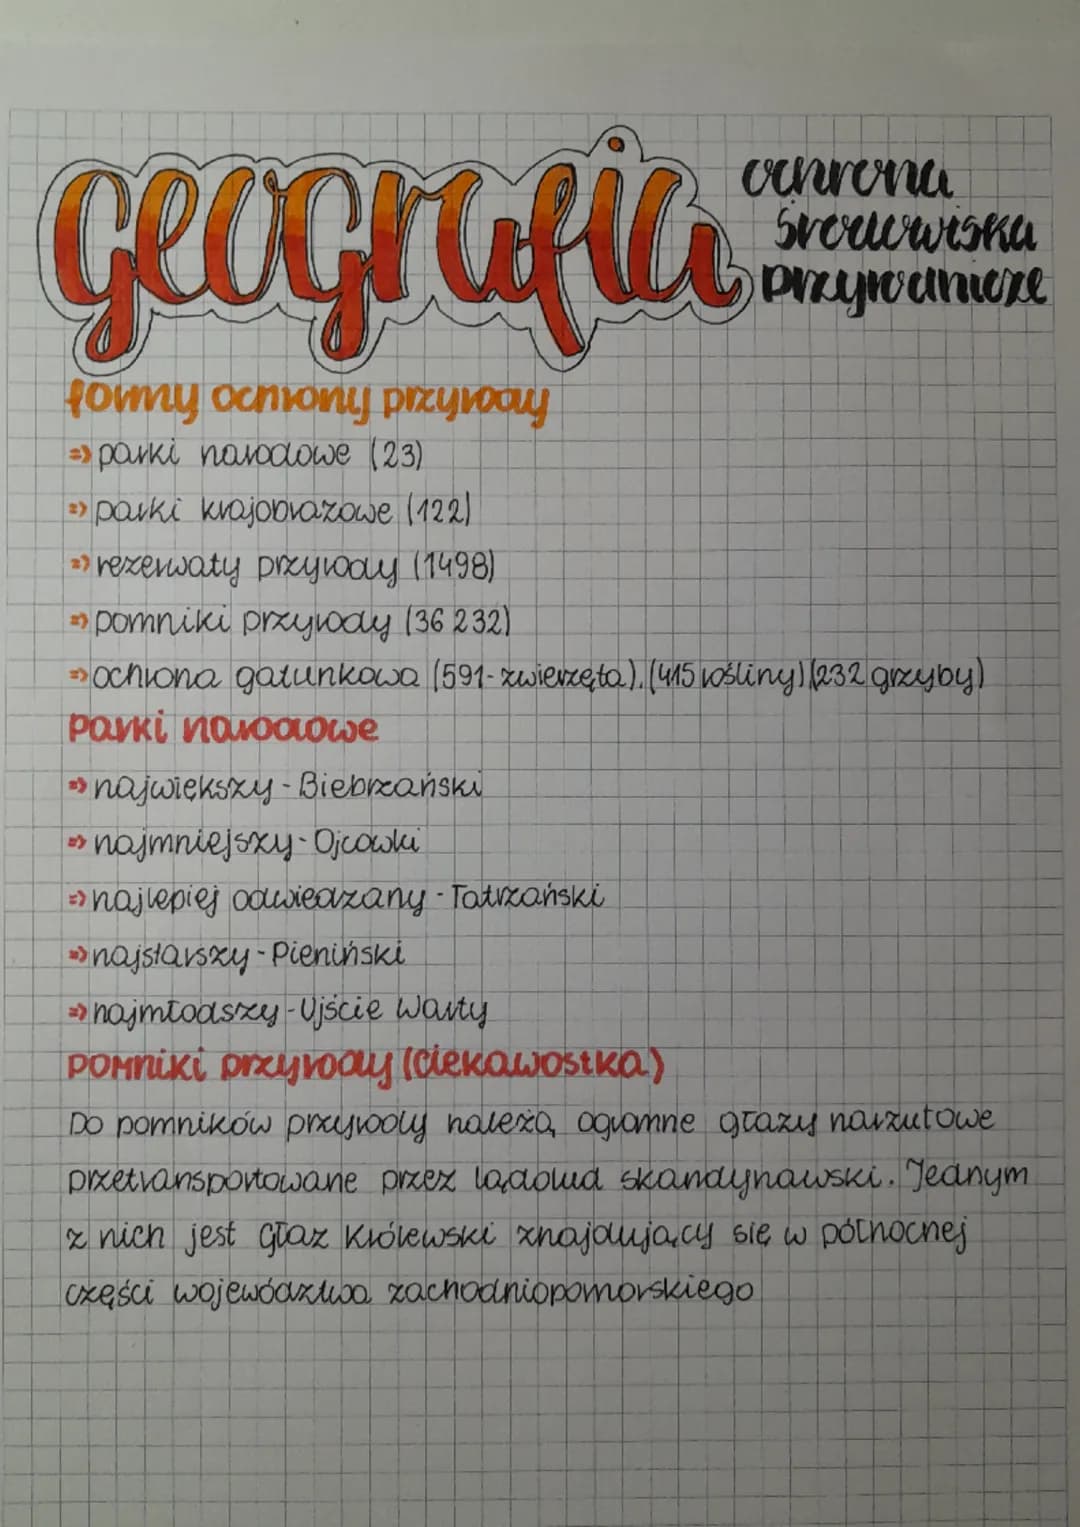 geografia
ochrona
środowiska
przyrodnicze
formy ochrony przyrody
=> parki narodowe (23)
=> parki krajobrazowe (122)
=> rezerwaty przyrody (1498)
=> pomniki przyrody (36 232)
=> ochrona gatunkowa (591- zwierzęta), (415 rośliny) (232 grzyby)
parki narodowe
=> największy - Biebrzański
=> najmniejszy - Ojcowki
=> najlepiej odwiedzany - Tatrzański
=> najstarszy - Pieniński
=> najmłodszy - Ujście Warty
pomniki przyrody (ciekawostka)
Do pomników przyrody należą ogromne głazy narzutowe
przetransportowane przez lądolud skandynawski. Jednym
z nich jest Głaz Królewski znajdujący się w północnej
części województwa zachodniopomorskiego